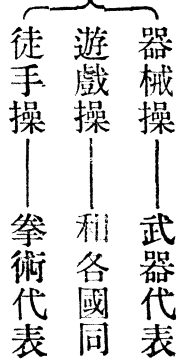 器械操——武器代表
遊戲操——和各國同
徒手操——拳術代表